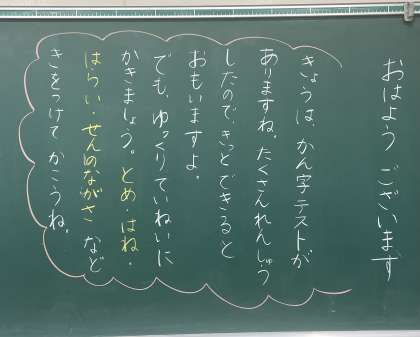 おはよう ございます
きょうは、かん字テストが
ありますね。たくさんれんしゅう
したので、きっとできると
おもいますよ。
でも、ゆっくりていねいに
かきましょう。とめ・はね・
はらい・せんのながさ など
きをつけて かこうね。